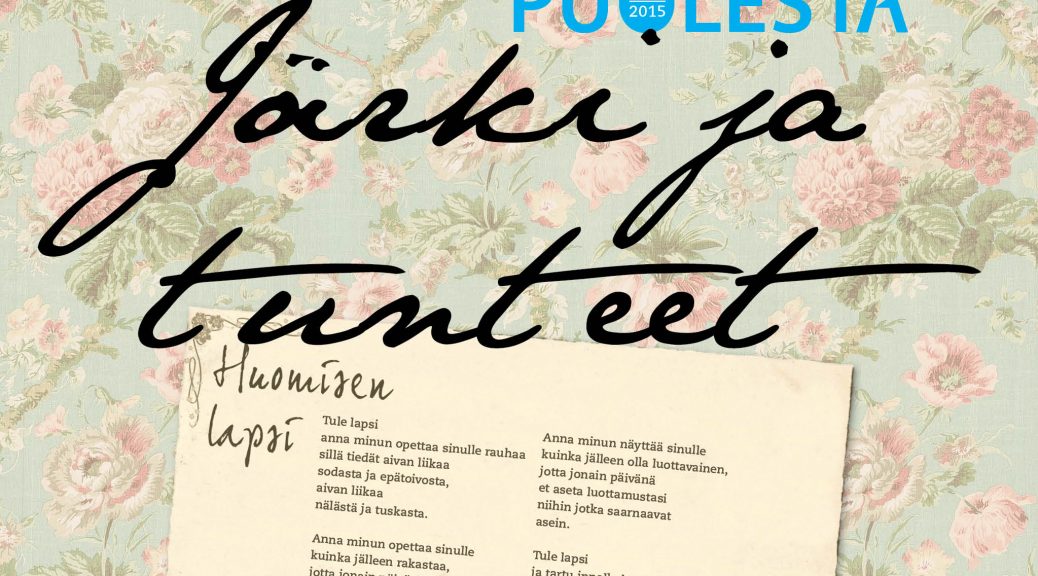 PUOLESTA
2015
Järki ja
tunteet
Huomisen
lapsi
Tule lapsi
anna minun opettaa sinulle rauhaa
sillä tiedät aivan liikaa
sodasta ja epätoivosta,
aivan liikaa
nälästä ja tuskasta.
Anna minun opettaa sinulle
kuinka jälleen rakastaa,
jotta jonain
Anna minun näyttää sinulle
kuinka jälleen olla luottavainen,
jotta jonain päivänä
et aseta luottamustasi
niihin jotka saarnaavat
asein.
Tule lapsi
ja tartu